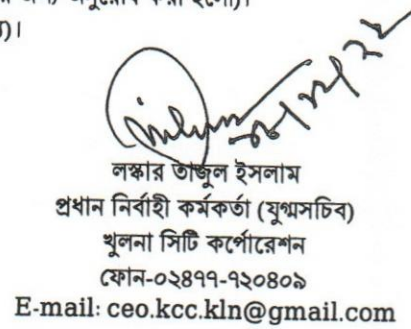 অনুরোধ করা হলো)।
)।
লস্কার তাজুল ইসলাম
প্রধান নির্বাহী কর্মকর্তা (যুগ্মসচিব)
খুলনা সিটি কর্পোরেশন
ফোন-০২৪৭৭-৭২০৪০৯
E-mail: ceo.kcc.kln@gmail.com